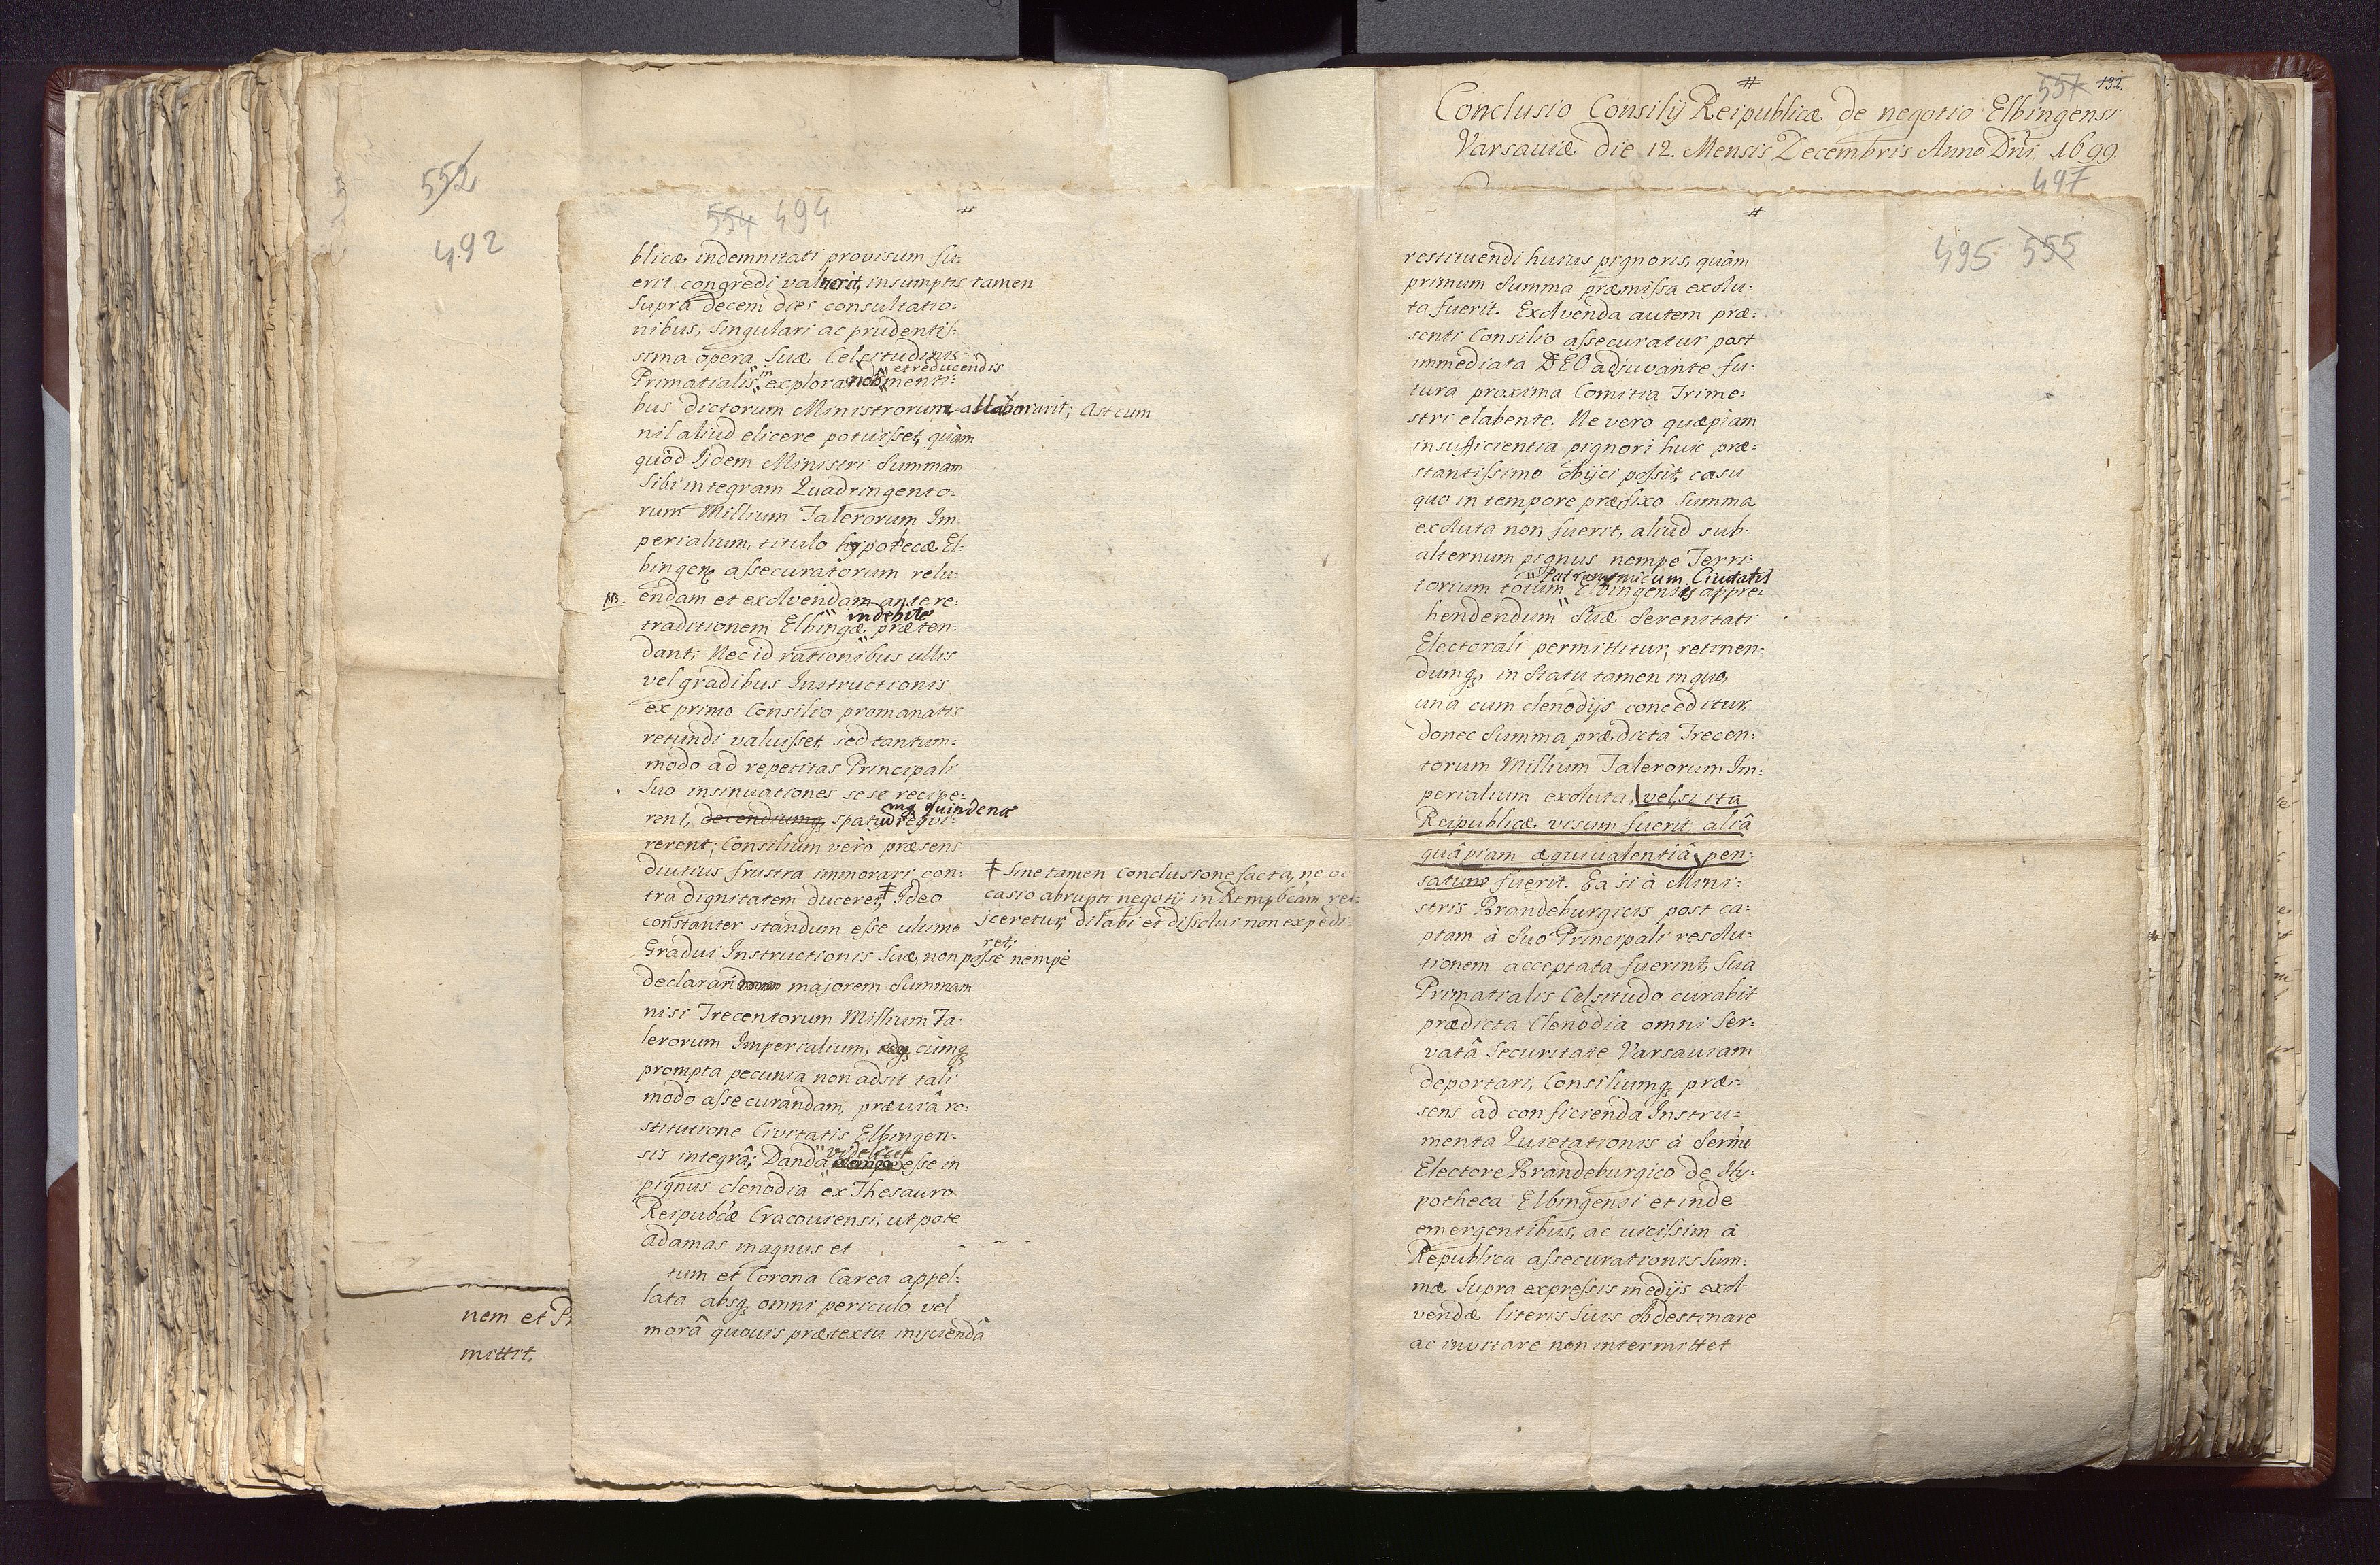 552
492
nem et
mittit.
554 494
blicæ indemnitati provisum fu:
erit congredi valuerit, insumptis tamen
supra decem dies consultatio:
nibus, singulari ac prudentis:
sima opera Suæ Celsitudinis
et reducendis
Primatialis in explorandis menti:
bus dictorum Ministrorum allaborarit; Ast cum
nil aliud elicere potuisset, quàm
quòd Ijdem Ministri Summam
sibi integram Quadringento:
rum Millium Talerorum Im
perialium, titulo hypothecæ El:
bingen assecuratorum relu:
NB. endam et exolvendam ante re:
indebite
traditionem Elbingæ præten:
dant; Nec id rationibus ullis
vel gradibus Instructionis
ex primo Consilio promanatis
retundi valuisset, sed tantum:
modo ad repetitas Principali
suo insinuationes sese recipe:
mq quindenæ
rent, decendiumq spatium requi:
rerent; Consilium verò præsens
diutius frustra immorari con:
tra dignitatem duceret, ‡ Ideo
constanter standum esse ultimo
Gradui Instructionis Suæ, non posse nempè
declarari majorem Summam
nisi Trecentorum Millium Ta:
lerorum Imperialium, cùmq
prompta pecunia non adsit tali
modo assecurandam, præviâ re:
stitutione Civitatis Elbingen:
videlicet
sis integrâ; Danda esse in
pignus clenodia ex Thesauro
Reipubcæ Cracoviensi, ut pote
adamas magnus et . - - -
tum et Corona Carea appel:
lata absq omni periculo vel
morâ quovis prætextu injicienda
‡ Sine tamen Conclusione facta, ne oc
casio abrupti negotij in Rempbcam rei:
iceretur, dilabi et dissolui non expedi:
ret;
# 557 132.
Conclusio Consilij Reipublicæ de negotio Elbingensi
Varsaviæ die 12. Mensis Decembris Anno Dni 1699.
497
#
495 555
restituendi huius pignoris, quàm
primum Summa præmissa exolu:
ta fuerit. Exolvenda autem præ:
senti Consilio assecuratur post
immediata DEO adjuvante fu:
tura proxima Comitia Trime:
stri elabente. Ne verò quæpiam
insufficientia pignori huic præ:
stantissimo obijci possit, casu
quo in tempore præfixo Summa
exoluta non fuerit, aliud sub:
alternum pignus nempe Terri:
Patrimonicum Civitatis
torium totum Elbingensis appre:
hendendum Suæ Serenitati
Electorali permittitur, retinen:
dumq, in statu tamen in quo,
una cum clenodijs conceditur,
donec Summa prædicta Trecen:
torum Millium Talerorum Im:
perialium exoluta, vel, si ita
Reipublicæ visum fuerit, aliâ
quâpiam æquivalentiâ pen:
satum fuerit. Ea si à Mini:
stris Brandeburgicis post ca:
ptam à Suo Principali resolu:
tionem acceptata fuerint, Sua
Primatialis Celsitudo curabit
prædicta Clenodia omni ser:
vatâ Securitate Varsaviam
deportari, Consiliumq præ:
sens ad conficienda Instru:
menta Quietationis à Sermo
Electore Brandeburgico de Hy:
potheca Elbingensi et inde
emergentibus, ac vicissim à
Republica assecurationis Sum:
mæ supra expressis medijs exol:
vendæ literis suis obdestinare
ac invitare non intermittet